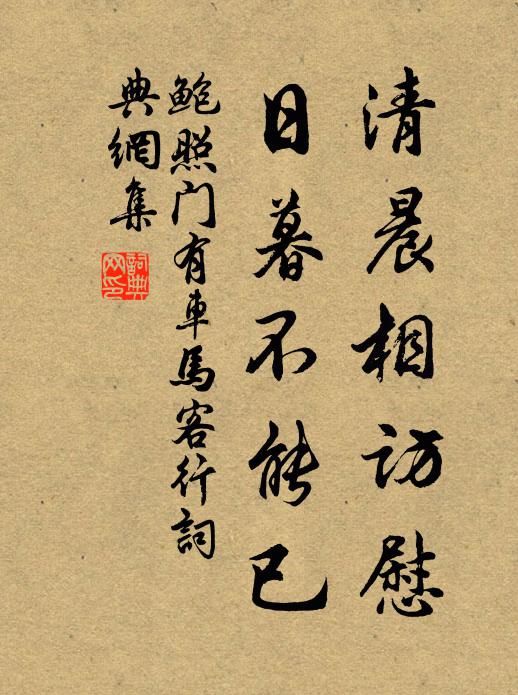 清晨相訪慰
日暮不能已
鲍照门有車馬客行詞
典網集
詞典網印